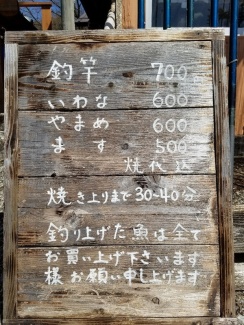 釣竿 700
いわな 600
やまめ 600
ます 500
焼代込
焼き上りまで30-40分
釣り上げた魚は全て
お買い上げ下さいます
様お願い申し上げます